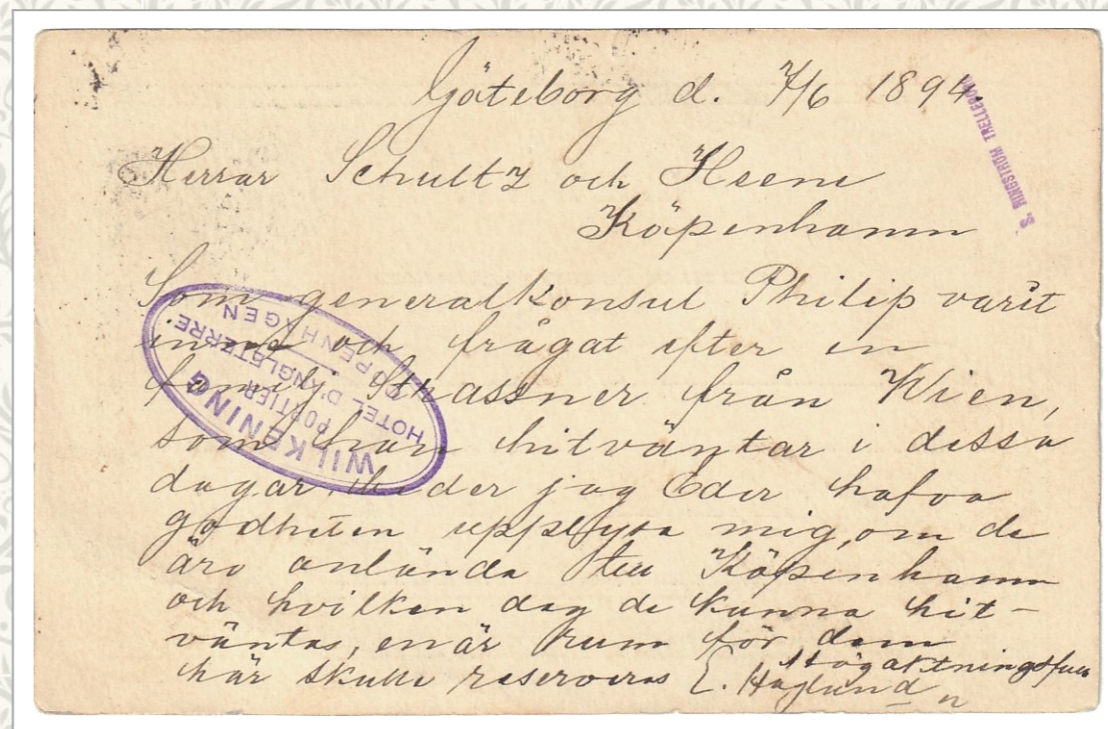 Göteborg d. 7/6 1894.
Herrar Schultz och
Köpenhamn
Som generalkonsul Philip varit
inne och frågat efter en
familj Strassner från Wien,
som han hitväntar i dessa
dagar, beder jag Eder hafva
godheten upplysa mig, om de
äro anlända till Köpenhamn
och hvilken dag de kunna hit-
väntas, enär rum för dem
här skulle reserveras
Högaktningsfull
E. Haglund
S. RINGSTRÖM TRELLEBORG
WILKENING
PORTIER
HOTEL D'ANGLETERRE
COPENHAGEN